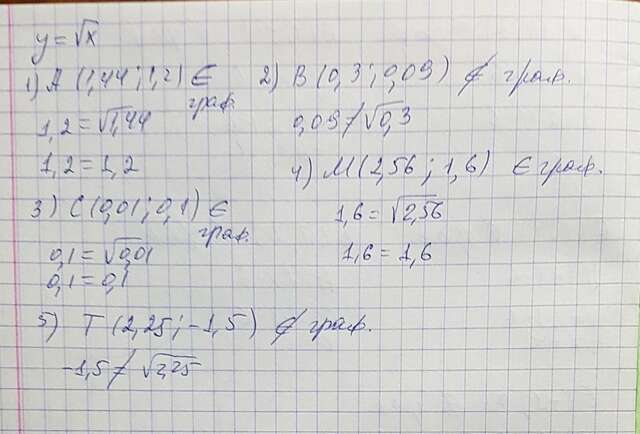 y = √x
1) A (1,44 ; 1,2) ∈ граф.
1,2 = √1,44
1,2 = 1,2
2) B (0,3 ; 0,09) ∉ граф.
0,09 ≠ √0,3
3) C (0,01 ; 0,1) ∈ граф.
0,1 = √0,01
0,1 = 0,1
4) M (2,56 ; 1,6) ∈ граф.
1,6 = √2,56
1,6 = 1,6
5) T (2,25 ; -1,5) ∉ граф.
-1,5 ≠ √2,25